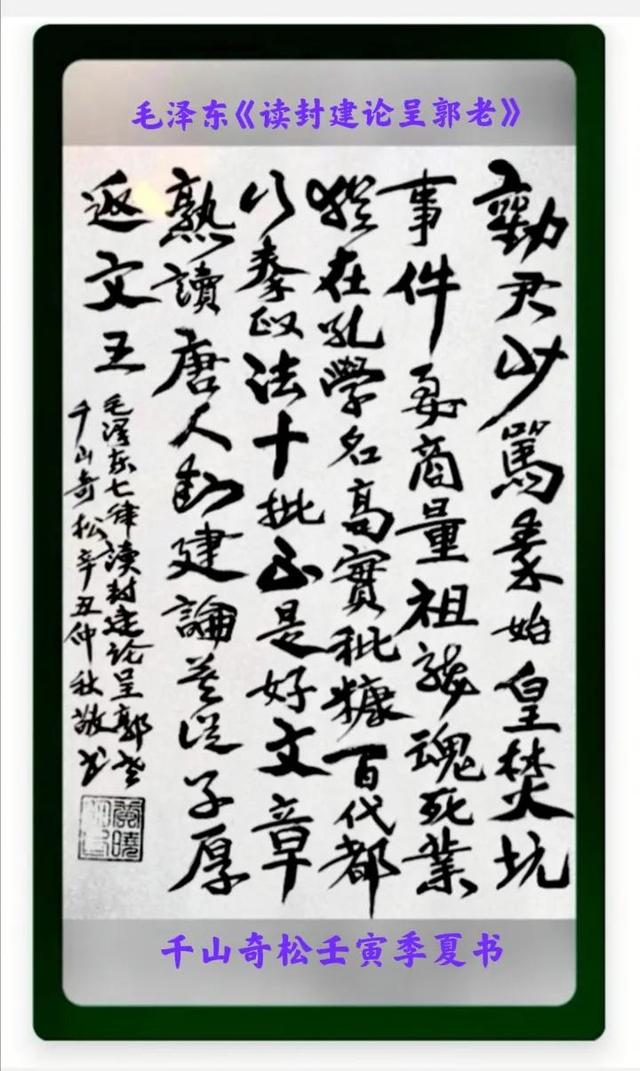 毛泽东《读封建论呈郭老》
勸君少罵秦始皇焚坑
事件要商量祖龍魂死業
猶在孔學名高實秕糠百代都
行秦政法十批不是好文章
熟讀唐人封建論莫從子厚
返文王
毛澤东七律读封建论呈郭老
千山奇松辛丑仲秋敬书
千山奇松壬寅季夏书